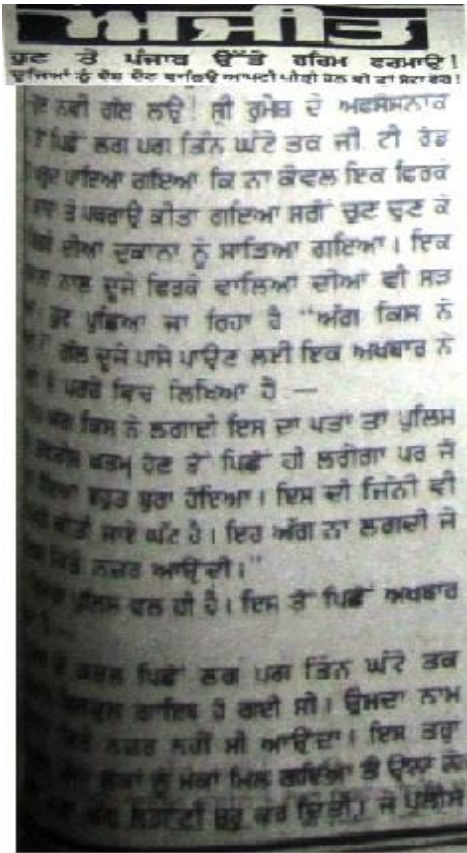 ਅਜੀਤ
ਹੁਣ ਤੇ ਪੰਜਾਬ ਉੱਤੇ ਰਹਿਮ ਫਰਮਾਉ !
ਦੂਜਿਆਂ ਨੂੰ ਦੋਸ਼ ਦੇਣ ਵਾਲਿਉ ਆਪਣੀ ਪੀੜੀ ਹੇਠ ਵੀ ਤਾਂ ਸੋਟਾ ਫੇਰੋ !
ਨਵੀਂ ਗੱਲ ਲਉ ! ਸ੍ਰੀ ਰਮੇਸ਼ ਦੇ ਅਫਸੋਸਨਾਕ
ਪਿਛੋਂ ਲਗ ਪਗ ਤਿੰਨ ਘੰਟੇ ਤਕ ਜੀ. ਟੀ ਰੋਡ
ਪਾਇਆ ਗਇਆ ਕਿ ਨਾ ਕੇਵਲ ਇਕ ਫਿਰਕੇ
ਤੇ ਪਥਰਾਉ ਕੀਤਾ ਗਇਆ ਸਗੋਂ ਚੁਣ ਚੁਣ ਕੇ
ਦੀਆਂ ਦੁਕਾਨਾਂ ਨੂੰ ਸਾੜਿਆ ਗਇਆ । ਇਕ
ਨਾਲ ਦੂਜੇ ਫਿਰਕੇ ਵਾਲਿਆਂ ਦੀਆਂ ਵੀ ਸੜ
ਹੁਣ ਪੁਛਿਆ ਜਾ ਰਿਹਾ ਹੈ "ਅੱਗ ਕਿਸ ਨੇ
ਗੱਲ ਦੂਜੇ ਪਾਸੇ ਪਾਉਣ ਲਈ ਇਕ ਅਖਬਾਰ ਨੇ
ਪਰਚੇ ਵਿਚ ਲਿਖਿਆ ਹੈ —
ਕਿਸ ਨੇ ਲਗਾਈ ਇਸ ਦਾ ਪਤਾ ਤਾਂ ਪੁਲਿਸ
ਖਤਮ ਹੋਣ ਤੋਂ ਪਿਛੋਂ ਹੀ ਲਗੇਗਾ ਪਰ ਜੋ
ਬਹੁਤ ਬੁਰਾ ਹੋਇਆ । ਇਸ ਦੀ ਜਿੰਨੀ ਵੀ
ਕੀਤੀ ਜਾਏ ਘੱਟ ਹੈ । ਇਹ ਅੱਗ ਨਾ ਲਗਦੀ ਜੇ
ਨਜ਼ਰ ਆਉਂਦੀ ।"
ਪੁਲਿਸ ਵਲ ਹੀ ਹੈ । ਇਸ ਤੋਂ ਪਿਛੋਂ ਅਖਬਾਰ
ਪਿਛੋਂ ਲਗ ਪਗ ਤਿੰਨ ਘੰਟੇ ਤਕ
ਗਾਇਬ ਹੋ ਗਈ ਸੀ । ਉਸਦਾ ਨਾਮ
ਨਜ਼ਰ ਨਹੀਂ ਸੀ ਆਉਂਦਾ । ਇਸ ਤਰ੍ਹਾਂ
ਨੂੰ ਮੌਕਾ ਮਿਲ ਗਇਆ ਤੇ ਉਨ੍ਹਾਂ ਨੇ
ਸ਼ੁਰੂ ਕਰ ਦਿੱਤੀ । ਜੇ ਪੁਲੀਸ